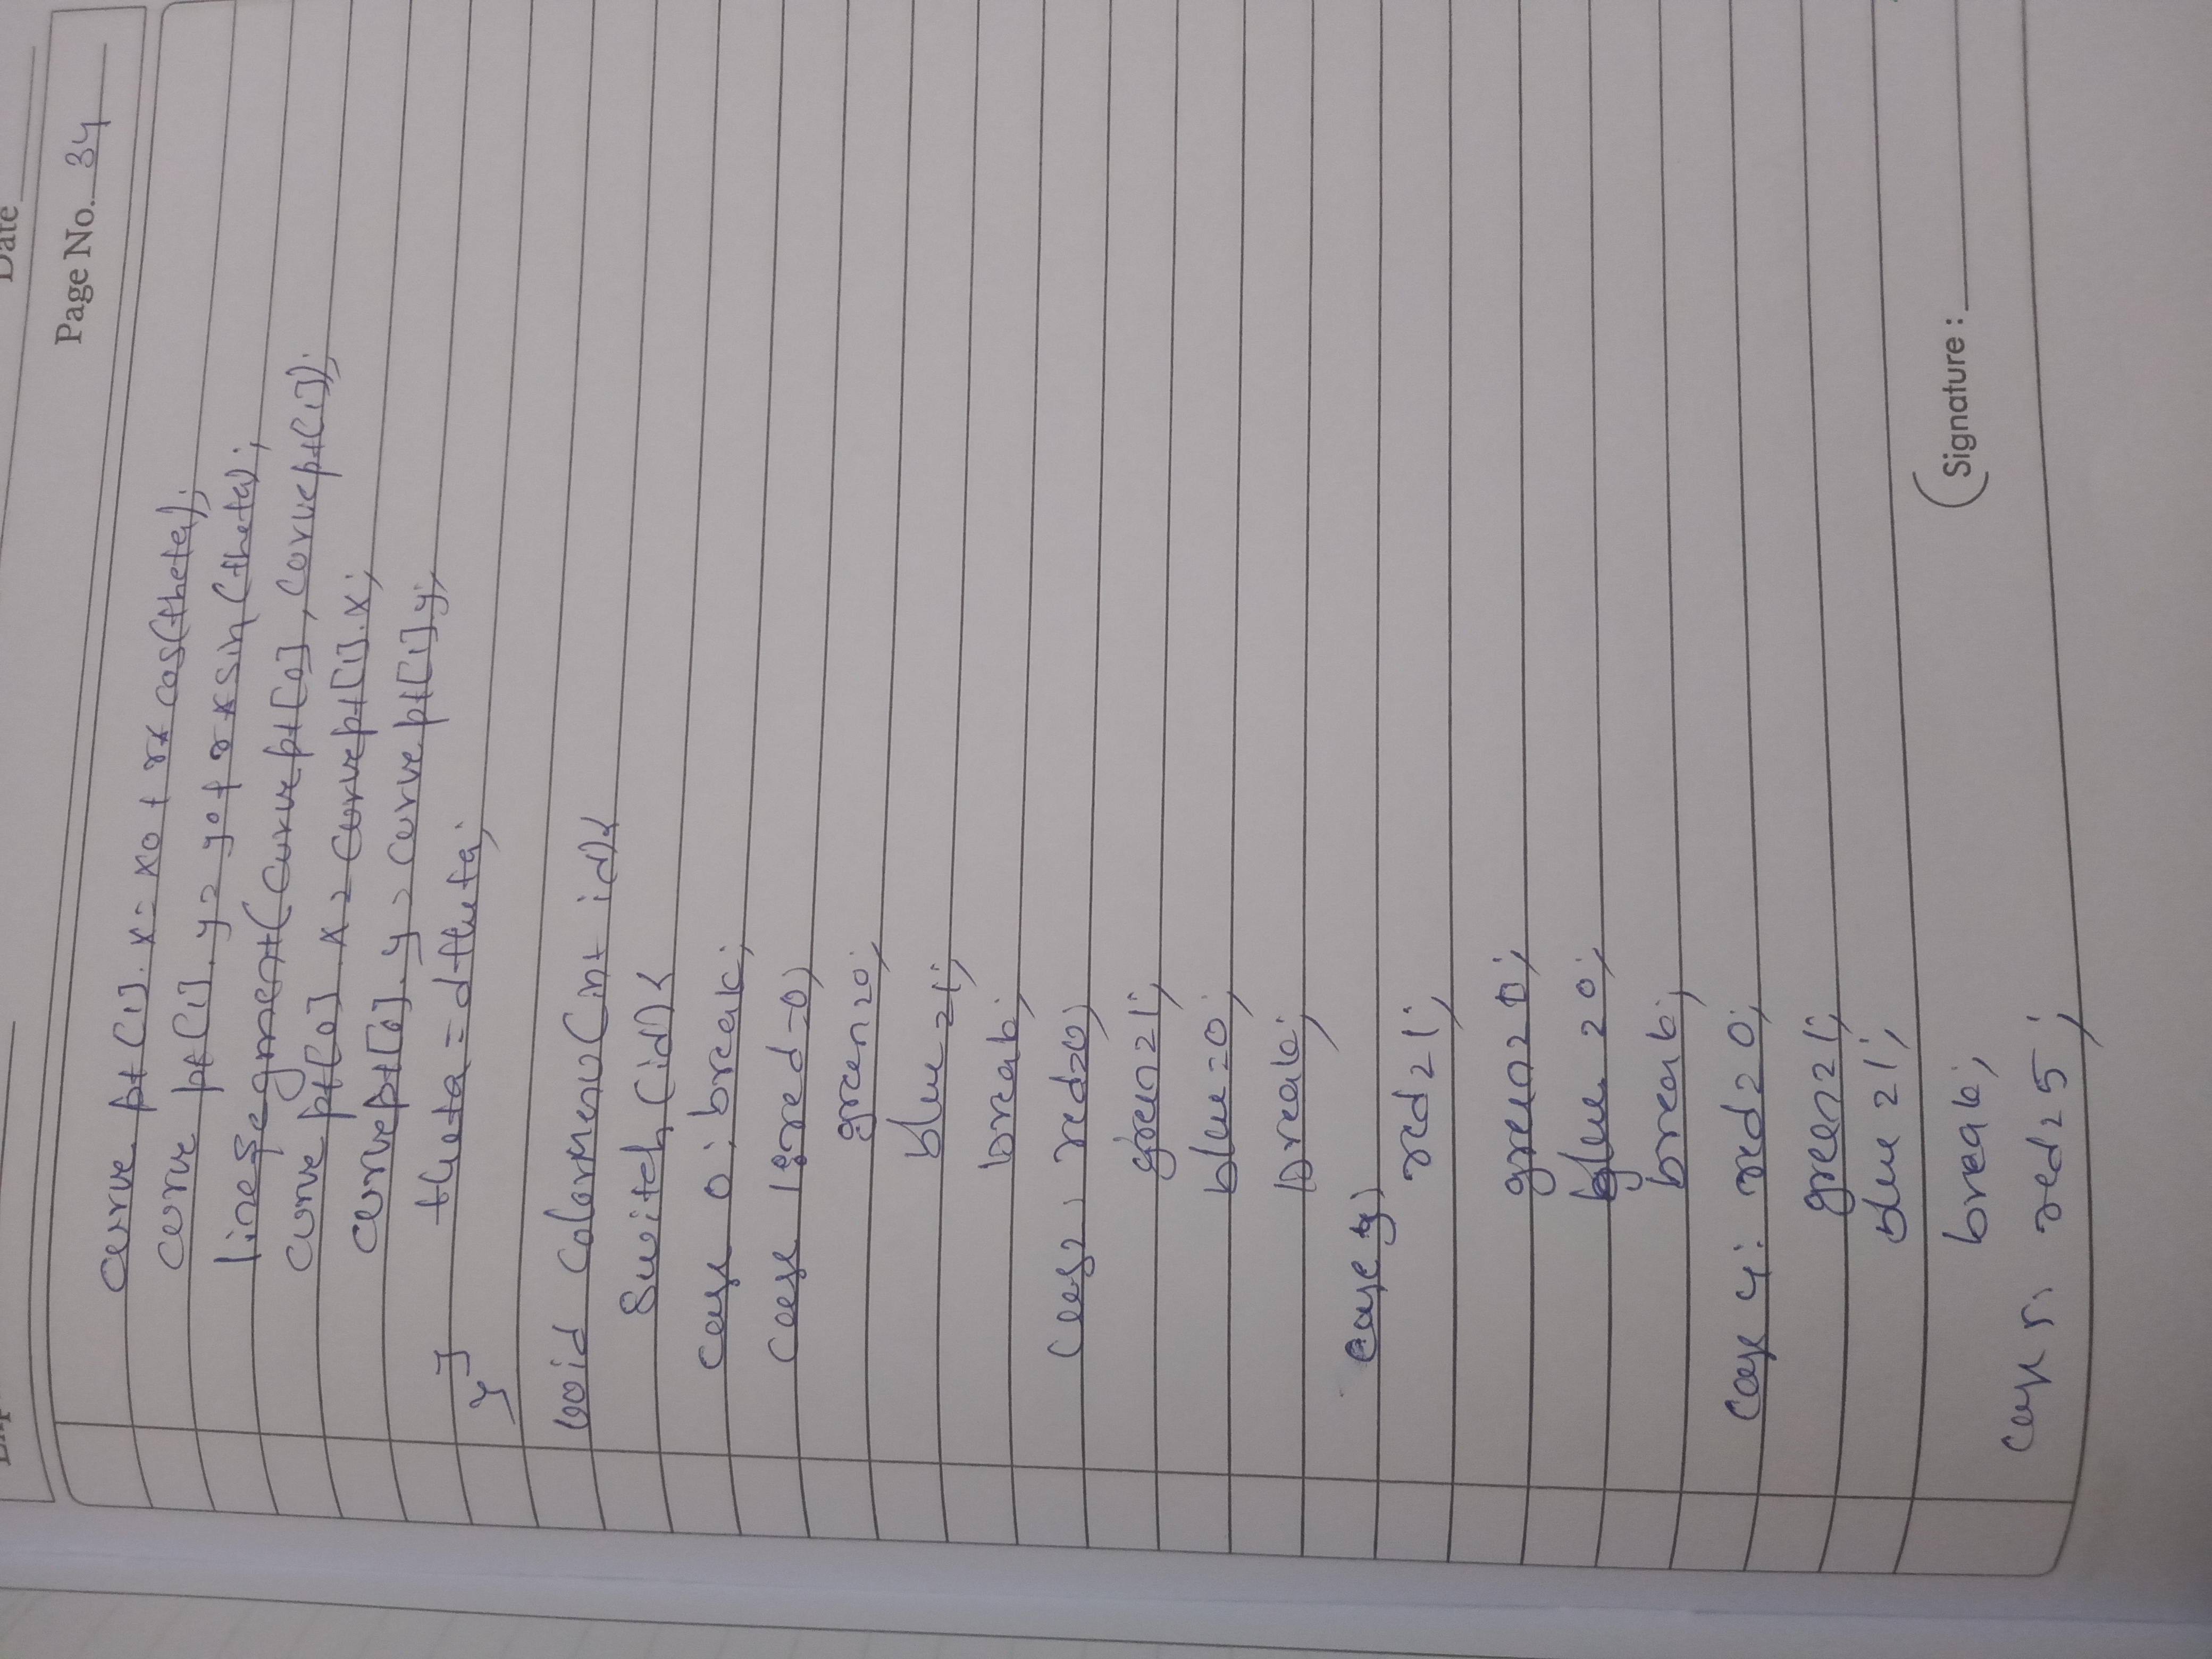 Date
Page No. 34
curve pt [1]. x = x0 + r* cos(theta);
curve pt [1]. y = y0 + r*sin (theta);
linesegment (curve pt [0], curvept[1]);
curve pt[0]. x = curvept[1].x;
curvept[0]. y = curve pt[1]y;
theta = dtheta;
}
}
void colormenu(int id){
Switch (id){
case 0: break;
case 1: red=0;
green=0;
blue=1;
break;
case2: red=0;
green=1;
blue=0;
break;
case 3:
red=1;
green=0;
blue=0;
break;
case 4: red=0;
green=1;
blue=1;
break;
case 5: red=5;
(Signature: